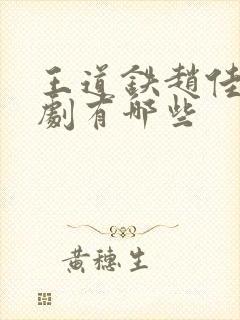 王道鉄趙佳
劇有哪些
黄穗生